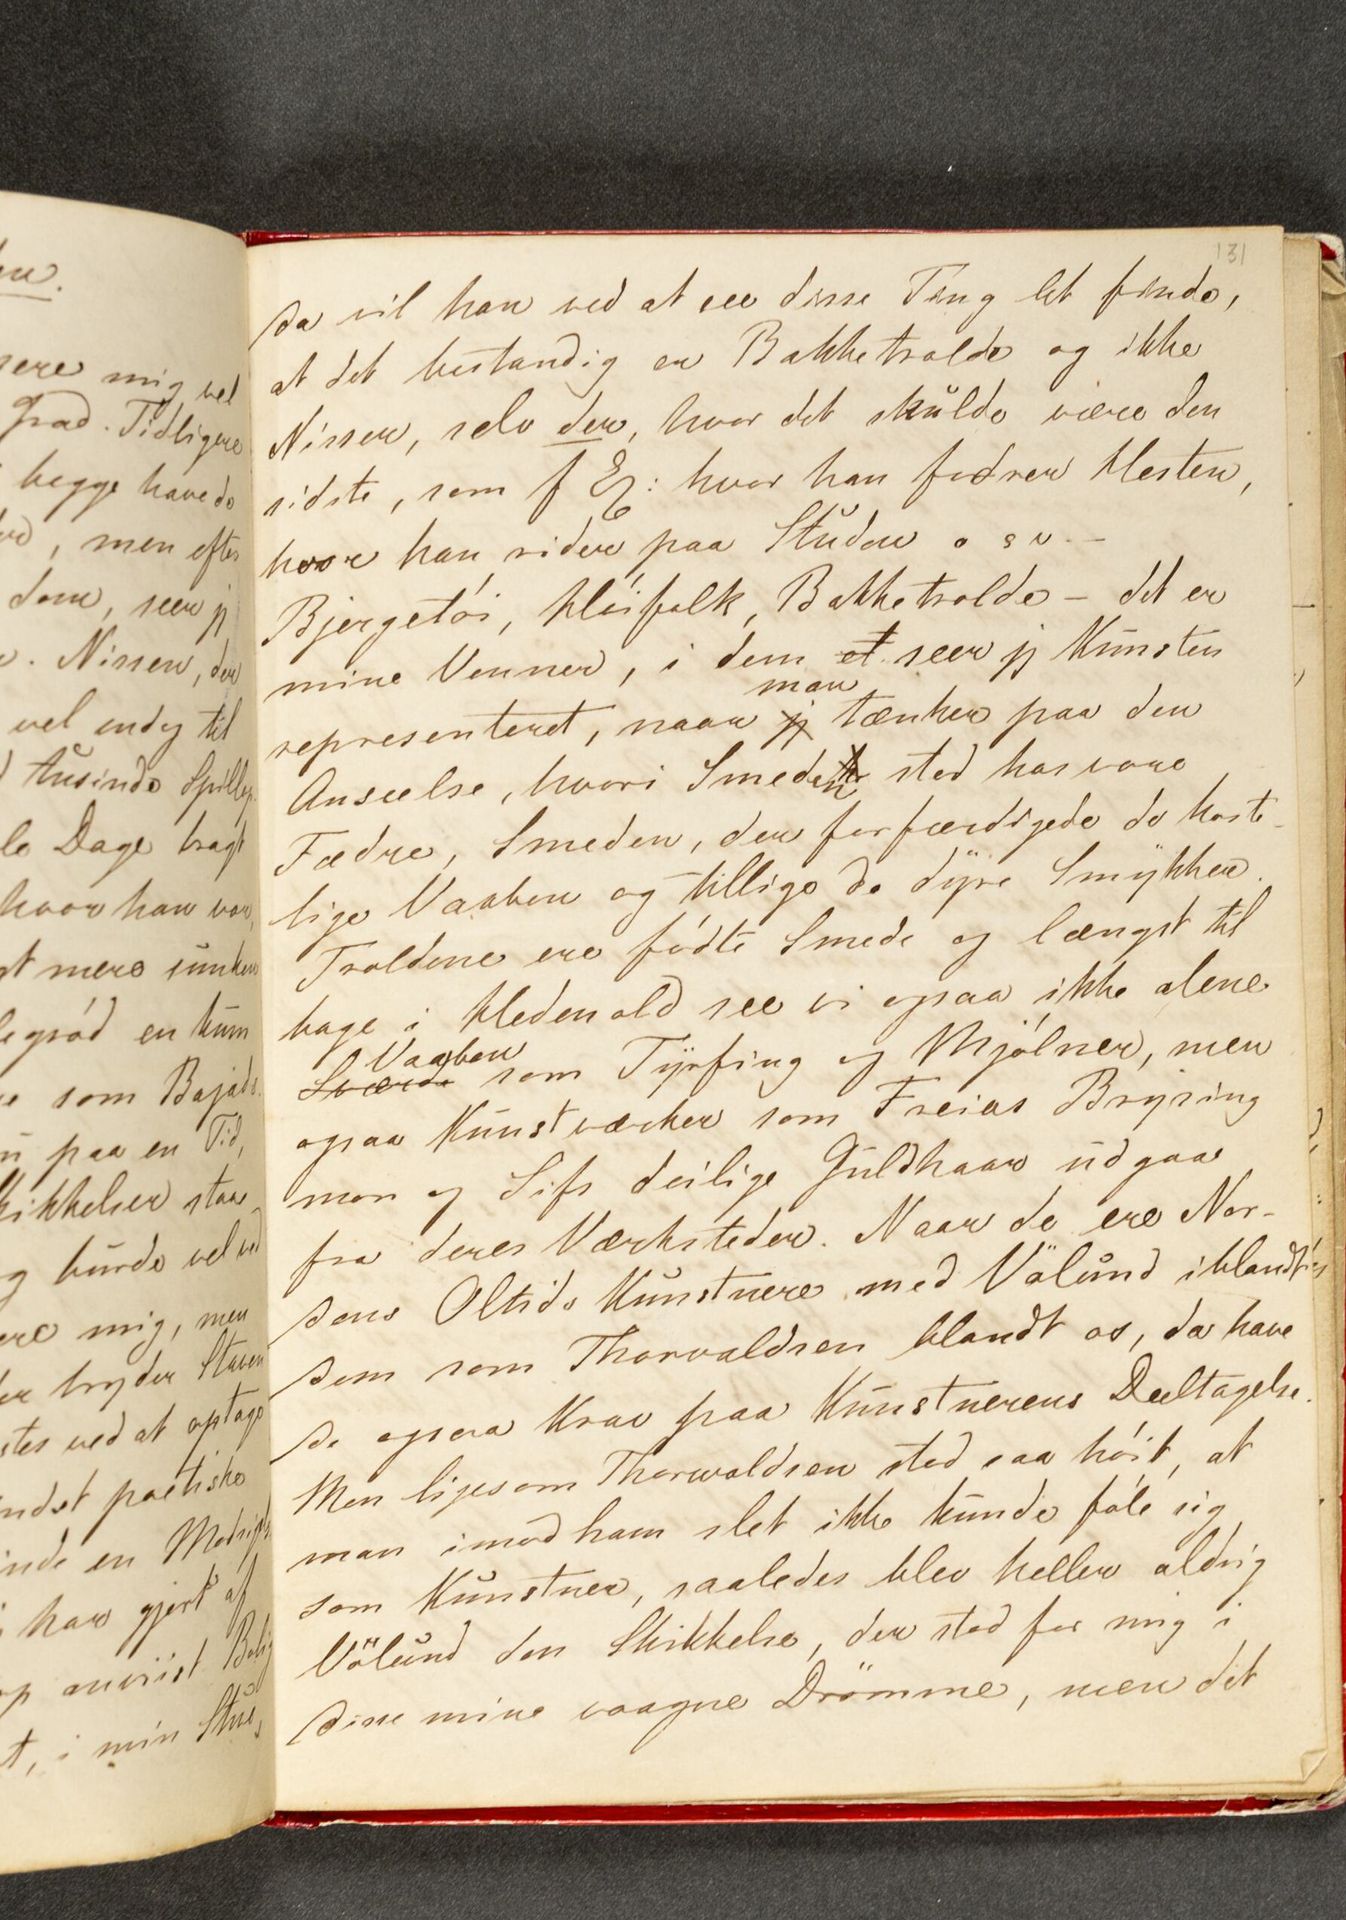 131
da vil han ved at see disse Ting let finde,
at det bestandig er Bakketrolde og ikke
Nissen, selv der, hvor det skulde være den
sidste, som f Ex: hvor han fodrer Hesten,
hvor han rider paa Studen o s v. -
Bjergetöi, Höifolk, Bakketrolde - det er
mine Venner, i dem et seer jeg Kunsten
man
representeret, naar jeg tænker paa den
Anseelse, hvori Smeden stod hos vore
Fædre, Smeden, der forfærdigede de koste-
lige Vaaben og tillige de dyre Smykker.
Troldene ere födte Smede og længst til
bage i Hedenold see vi ogsaa ikke alene
Vaaben
Sværde som Tyrfing og Mjölner, men
ogsaa Kunstværker som Freias Brysing
men og Sifs deilige Guldhaar udgaae
fra deres Værksteder. Naar de ere Nor-
dens Oltids Kunstnere med Völund iblandt
dem som Thorvaldsen blandt os, da have
de ogsaa Krav paa Kunstnerens Deeltagelse.
Men ligesom Thorvaldsen stod saa höit, at
man imod ham slet ikke kunde föle sig
som Kunstner, saaledes blev heller aldrig
Völund den Skikkelse, der stod for mig i
disse mine vaagne Drömme, men det
mig vel
Grad. Tidligere
begge have de
, men efter
dem, seer jeg
. Nissen, der
vel endog til
tusinde
Dage bragt
hvor han var,
mere
en
som
paa en Tid,
staae
burde vel ved
mig, men
bryder Staven
ved at optage
poetiske
en
har gjort af
anviist Bolig
, i min Stue,